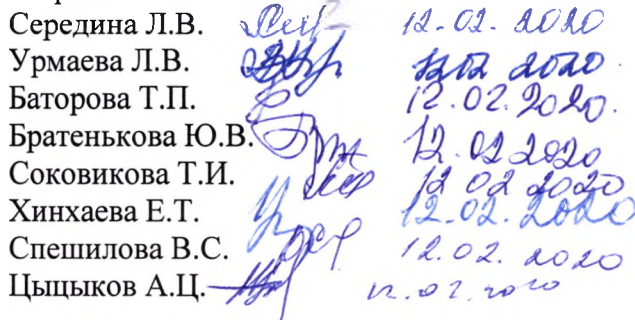 Середина Л.В. 12.02.2020
Урмаева Л.В. 12.02 2020.
Баторова Т.П. 12.02.2020.
Братенькова Ю.В. 12.02 2020
Соковикова Т.И. 12 02 2020
Хинхаева Е.Т. 12.02.2020
Спешилова В.С. 12.02.2020
Цыцыков А.Ц. 12.02.2020